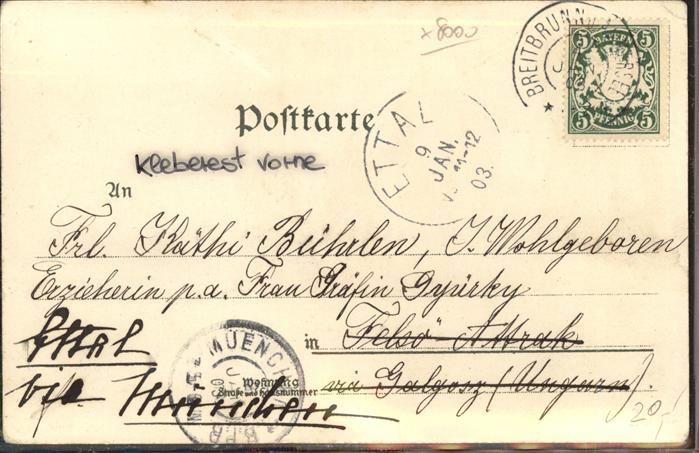 x 8000
BREITBRUNN
5 BAYERN 5
5 PFENNIG 5
Postkarte
ETTAL
9
JAN.
11-12
03.
Kleberest vorne
An
Frl. Käthi Bührlen, I. Wohlgeboren
Erzieherin p.a. Frau Gräfin Gyürky
in Felsö-Attrak
Ettal
via München
via Galgosz (Ungarn).
MUENCH
Wohnung
Straße und Hausnummer
20,-